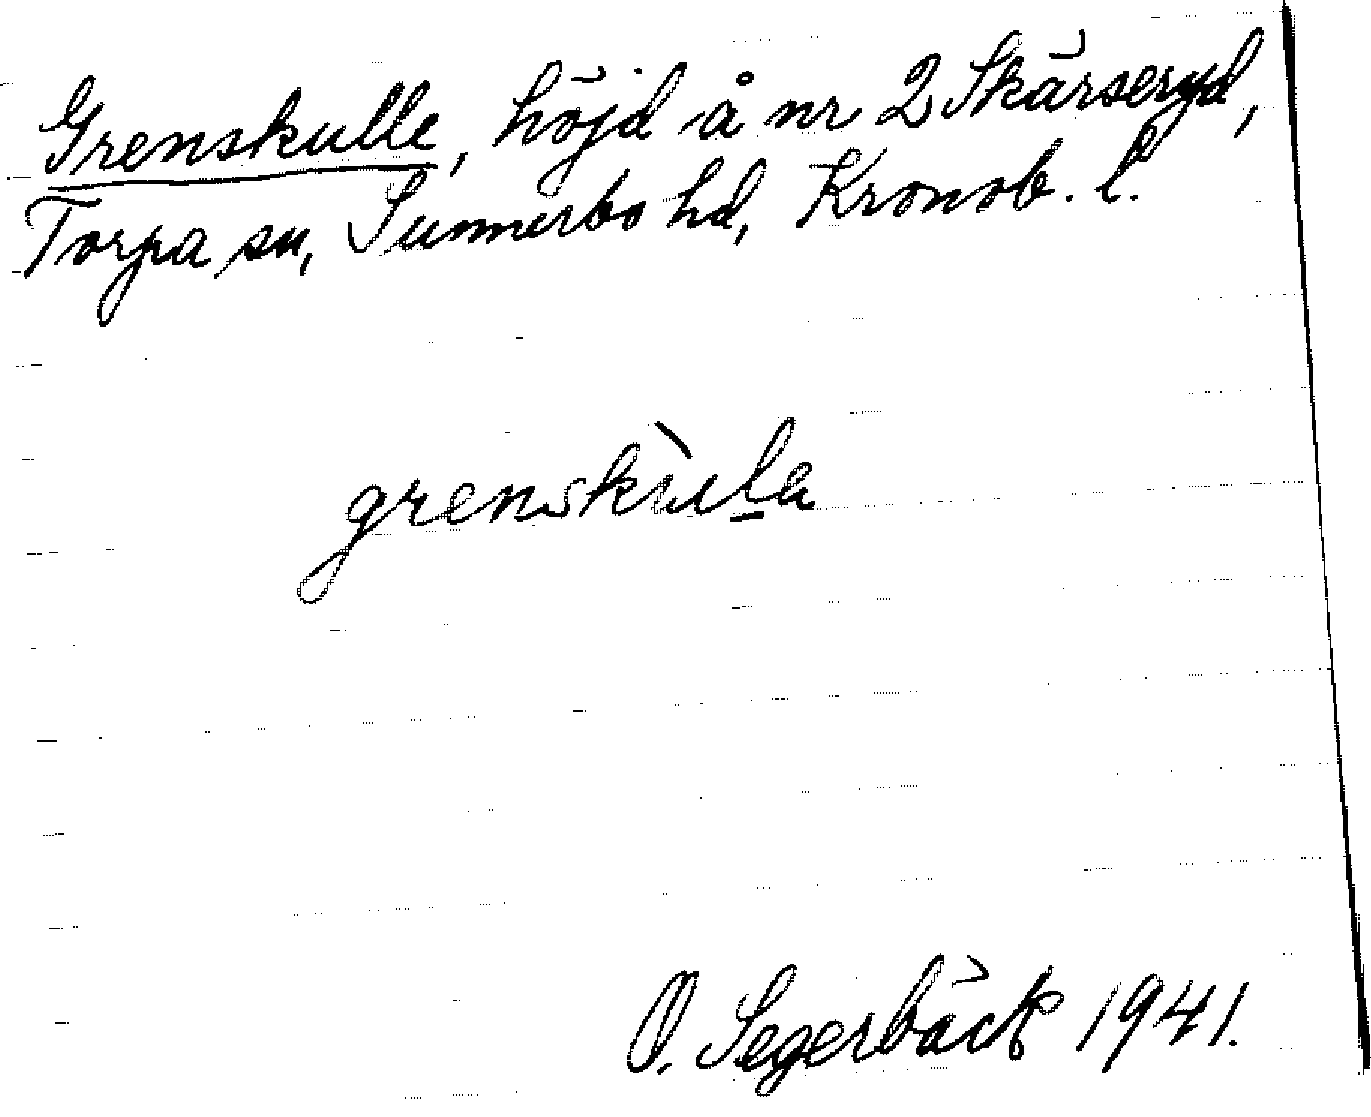 Grenskulle, höjd å nr 2 Skärseryd,
Torpa sn, Sunnerbo hd, Kronob. l.
grenskùl̲a
O. Segerbäck 1941.